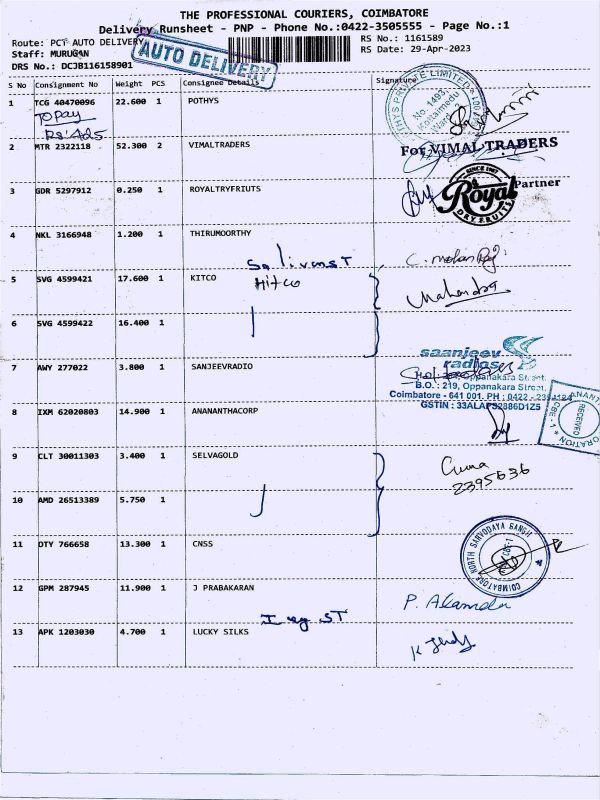 THE PROFESSIONAL COURIERS, COIMBATORE
Delivery Runsheet - PNP - Phone No.:0422-3505555 - Page No.:1
Route: PCT AUTO DELIVERY RS No.: 1161589
Staff: MURUGAN RS Date: 29-Apr-2023
DRS No.: DCJB116158901
AUTO DELIVERY
S No Consignment No Weight PCS Consignee Details Signature
1 TCG 40470096 22.600 1 POTHYS
TOPAY
No. 1493,
2 MTR 2322118 52.300 2 VIMALTRADERS
For VIMAL TRADERS
Partner
3 GDR 5297912 0.250 1 ROYALTRYFRIUTS
SINCE 1987
Royal
DRY FRUITS
4 NKL 3166948 1.200 1 THIRUMOORTHY
5 SVG 4599421 17.600 1 KITCO
Hitco
Mahendra
6 SVG 4599422 16.400 1
7 AWY 277022 3.800 1 SANJEEVRADIO
saanjeev
radios
Oppanakara Street,
B.O. : 219, Oppanakara Street,
Coimbatore - 641 001. PH : 0422 -
8 IXM 62020803 14.900 1 ANANANTHACORP
RECEIVED
9 CLT 30011303 3.400 1 SELVAGOLD
2395636
10 AMD 26513389 5.750 1
11 OTY 766658 13.300 1 CNSS
COIMBATORE NORTH SARVODAYA SANGH
12 GPM 287945 11.900 1 J PRABAKARAN
13 APK 1203030 4.700 1 LUCKY SILKS